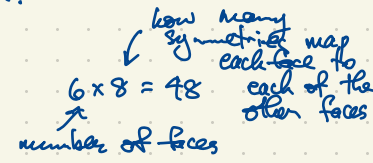 how many
symmetries map
each face to
6 × 8 = 48 each of the
other faces
number of faces